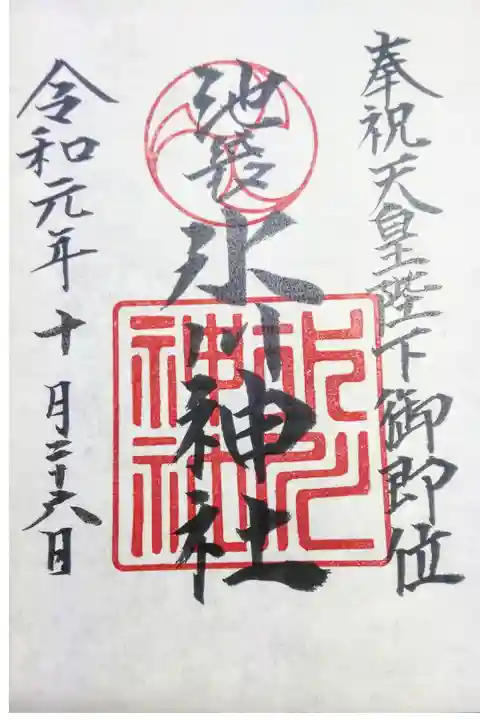 奉祝天皇陛下御即位
池袋氷川神社
氷川神社
令和元年十月二十六日